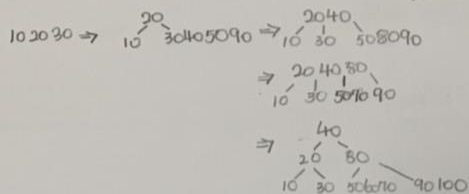 20 2040
10 20 30 ⇒ 10 30405090 ⇒ 10 30 508090
⇒ 20 40 80
10 30 5070 90
⇒ 40
20 80
10 30 506070 90100